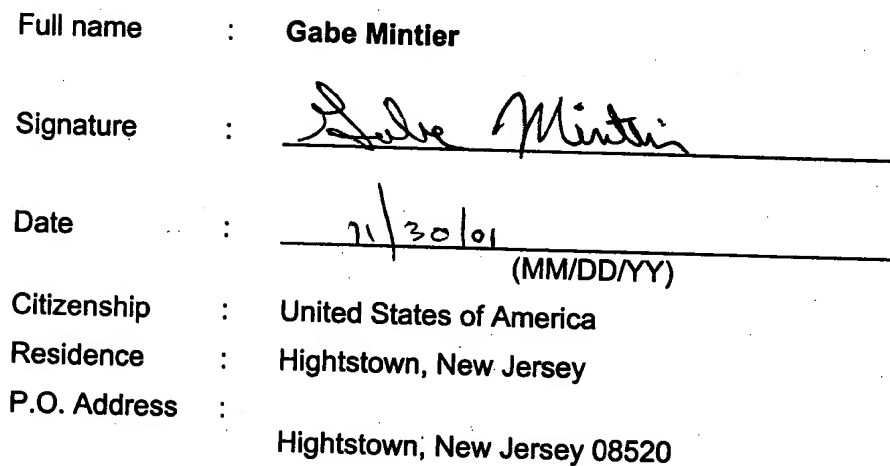 Full name : Gabe Mintier
Signature : Gabe Mintier
Date : 11/30/01
(MM/DD/YY)
Citizenship : United States of America
Residence : Hightstown, New Jersey
P.O. Address :
Hightstown, New Jersey 08520